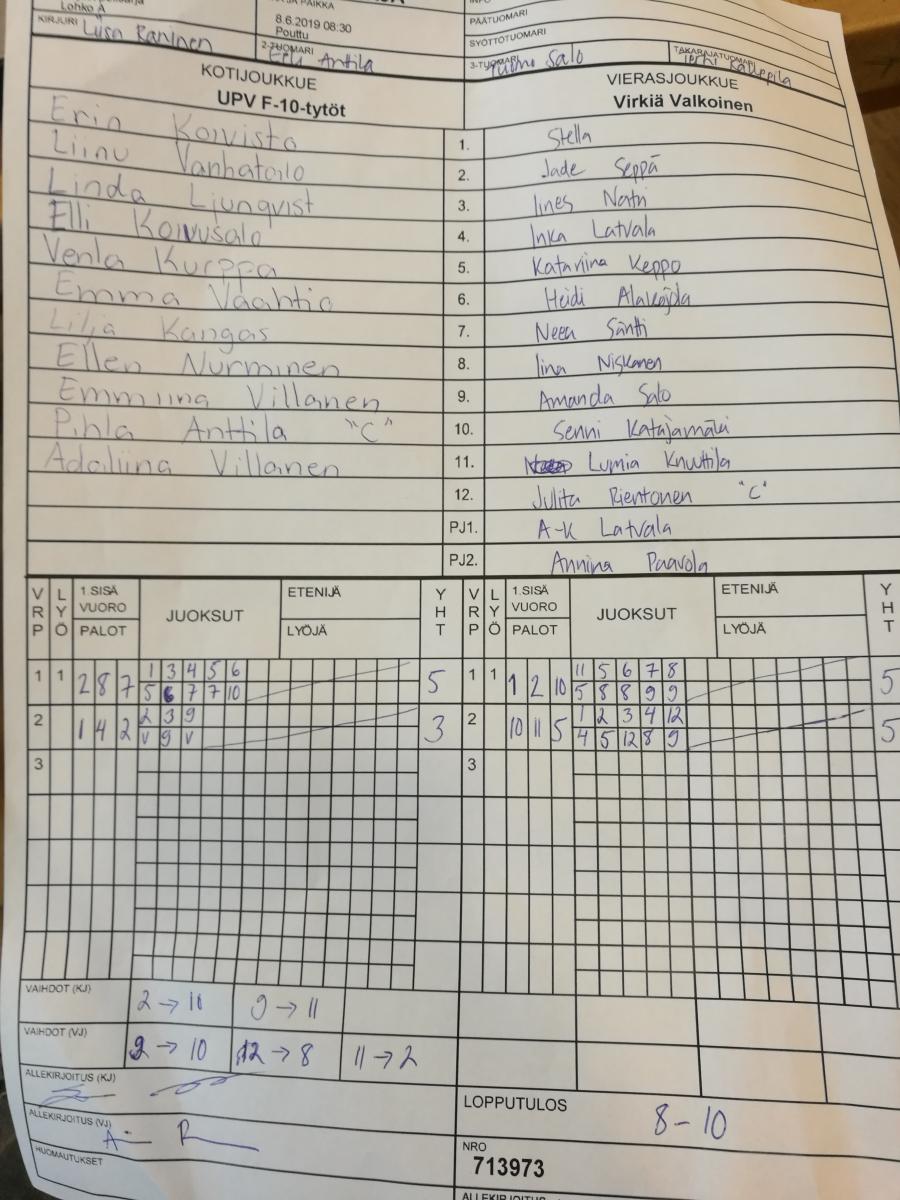 Lohko A
PAIKKA
INFO
8.6.2019 08:30
Pouttu
PÄÄTUOMARI
KIRJURI Liisa Raninen
SYÖTTÖTUOMARI
2-TUOMARI Anttila
3-TUOMARI Salo
TAKARAJATUOMARI
KOTIJOUKKUE
VIERASJOUKKUE
UPV F-10-tytöt
Virkiä Valkoinen
Erin Koivisto 1. Stella
Liinu Vanhatalo 2. Jade Seppä
Linda Ljunqvist 3. Iines Natri
Elli Koivusalo 4. Inka Latvala
Venla Kurppa 5. Katariina Keppo
Emma Vaahtio 6. Heidi Alakojola
Lilja Kangas 7. Neea Säntti
Ellen Nurminen 8. Iina Niskanen
Emmiina Villanen 9. Amanda Salo
Pihla Anttila "C" 10. Senni Katajamäki
Adaliina Villanen 11. Lumia Knuuttila
12. Julita Rientonen "C"
PJ1. A-K Latvala
PJ2. Annina Paavola
VRP LYÖ 1.SISÄ VUORO JUOKSUT ETENIJÄ YHT VRP LYÖ 1.SISÄ VUORO JUOKSUT ETENIJÄ YHT
PALOT LYÖJÄ PALOT LYÖJÄ
1 1 2 8 7 1 3 4 5 6 5 1 1 1 2 10 11 5 6 7 8 5
5 6 7 7 10 5 8 8 9 9
2 1 4 2 2 3 9 3 2 10 11 5 1 2 3 4 12 5
v 9 v 4 5 12 8 9
3 3
VAIHDOT (KJ) 2 → 10 9 → 11
VAIHDOT (VJ) 9 → 10 12 → 8 11 → 2
ALLEKIRJOITUS (KJ)
LOPPUTULOS 8-10
ALLEKIRJOITUS (VJ)
NRO
713973
HUOMAUTUKSET